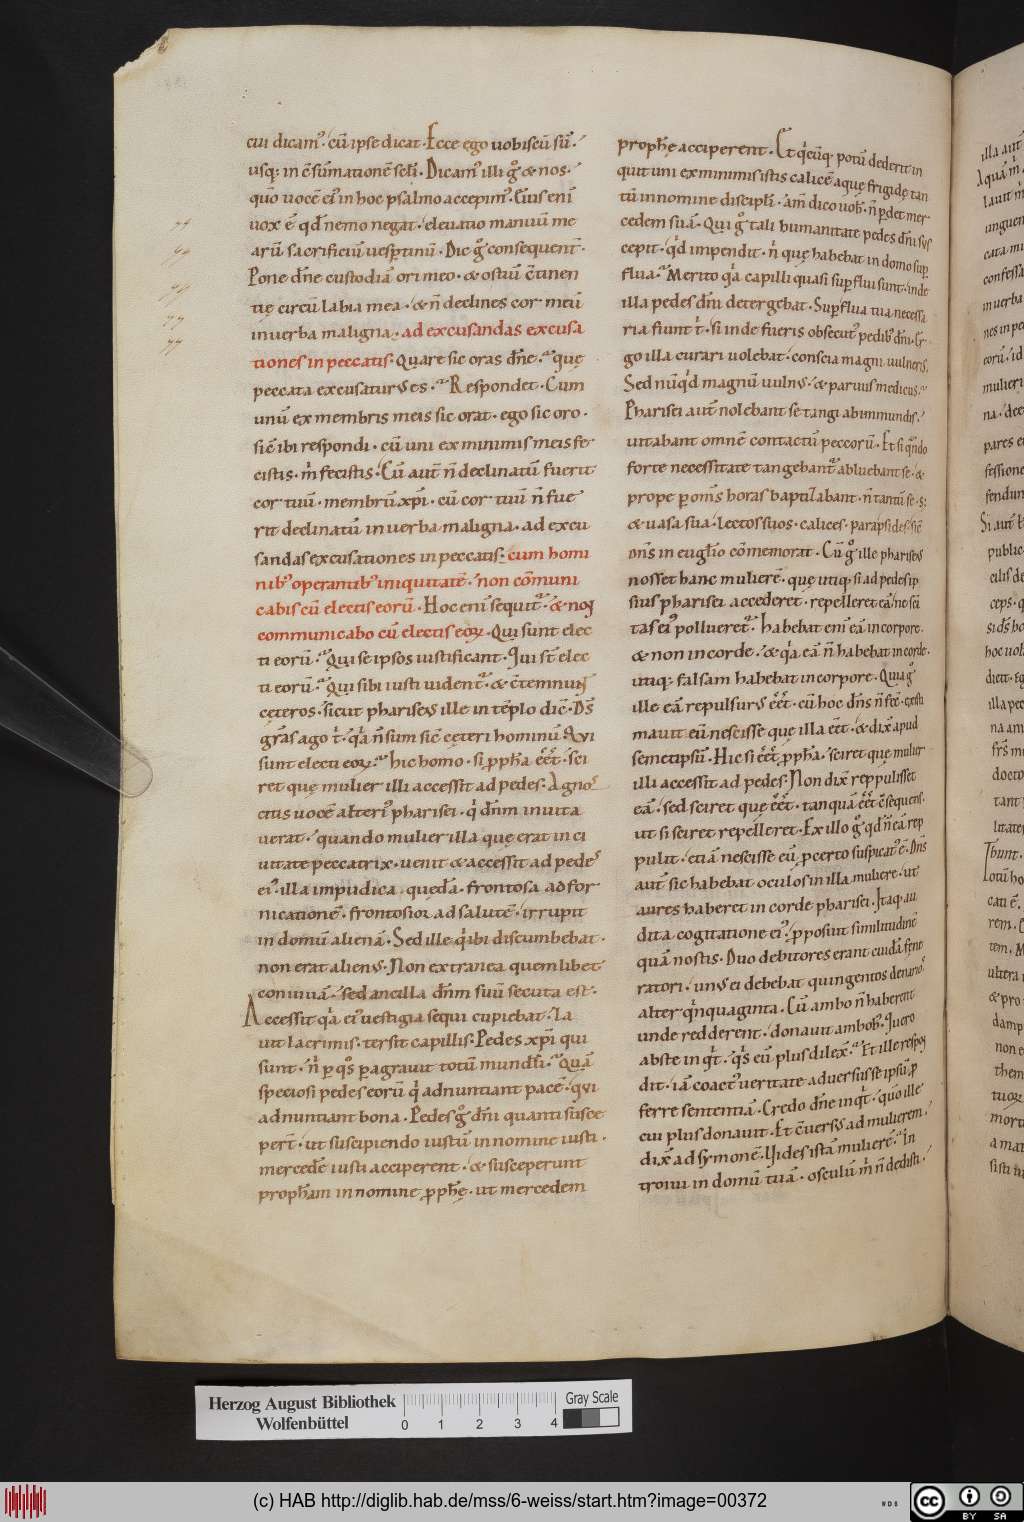 cui dicam᾽. cū ipse dicat. Ecce ego uobiscū sū.
usq; in c̄sūmationē scl̄i. Dicam᾽ illi g° & nos.
quō uocē ei᾽ in hoc psalmo accepim᾽. Ei᾽ eni
uox ē qd̄ nemo negat. eleuatio manuū me
arū sacrificiū uesꝑtinū. Dic g° consequent̄.
Pone dn̄e custodiā ori meo. & ostiū c̄tinen
tię circū labia mea. & n̄ declines cor meū
in uerba maligna. ad excusandas excusa
tiones in peccatis. Quare sic oras dn̄e. quę
peccata excusaturus es. Respondet. Cum
unū ex membris meis sic orat. ego sic oro.
sic ibi respondi. cū uni ex minimis meis fe
cistis. m̄ fecistis. Cū aut̄ n̄ declinatū fuerit
cor tuū. membrū xp̄i. cū cor tuū n̄ fue
rit declinatū in uerba maligna. ad excu
sandas excusationes in peccatis. cum homi
nib᾽ operantib᾽ iniquitatē. non cōmuni
cabis cū electis eorū. Hoc eni sequit̄. & nō
communicabo cū electis eoꝝ. Qui sunt elec
ti eorū. Qui se ipsos iustificant. Qui st̄ elec
ti eorū. Qui sibi iusti uident̄. & c̄temnunt
cęteros. sicut phariseus ille in tēplo dic̄. Ds̄
gr̄as ago t̄. qa n̄ sum sic cęteri hominū. Qui
sunt electi eoꝝ. hic homo. si ꝓph̄a eēt. sci
ret quę mulier illi accessit ad pedes. Agnos
citis uocē alteri᾽ pharisei. q dn̄m inuita
uerat. quando mulier illa quę erat in ci
uitate peccatrix. uenit & accessit ad pedes
ei᾽. illa impudica. quędā. frontosa ad for
nicationē. frontosior ad salutē. irrupit
in domū alienā. Sed ille q ibi discumbebat.
non erat alienus. Non extranea quemlibet
conuiuā. sed ancilla dn̄m suū secuta est.
Accessit qa ei᾽ uestigia sequi cupiebat. La
uit lacrimis. tersit capillis. Pedes xp̄i qui
sunt. n̄ ꝑ qs ꝑagrauit totū mundū. Quā
speciosi pedes eorū q adnuntiant pacē. qui
adnuntiant bona. Pedes g° dn̄i quanti susce
perr̄. ut suscipiendo iustū in nomine iusti.
mercedē iusti acciperent. & susceperunt
proph̄am in nomine ꝓph̄ę. ut mercedem
proph̄ę acciperent. Et qcūq; potū dederit in
quit uni ex minimis istis calicē aquę frigidę tan
tū in nomine discipl̄i. am̄ dico uob. n̄ ꝑdet mer
cedem suā. Qui g° tali humanitate pedes dn̄i sus
cepit. qd̄ impendit. n̄ quę habebat in domo suꝑ
flua. Merito qa capilli quasi suꝑflui sunt. inde
illa pedes dn̄i detergebat. Suꝑflua tua necessa
ria fiunt t̄. si inde fueris obsecut᾽ pedib᾽ dn̄i. Er
go illa curari uolebat. conscia magni uulneris.
Sed nūqd magnū uuln᾽. & paruus medicus.
Pharisei aut̄ nolebant se tangi ab immundis.
uitabant omnē contactū peccorū. Et si qn̄do
forte necessitate tangebant̄ abluebant se. &
prope ꝑ om̄s horas baptizabant. n̄ tantū se. s;
& uasa sua. lectos suos. calices. parapsides. sic
dn̄s in eugl̄io cōmemorat. Cū g° ille phariseus
nosset hanc mulierē. quę utiq; si ad pedes ip
sius pharisei accederet. repelleret eā. ne sci
tas ei᾽ pollueret̄. habebat eni eā in corpore.
& non in corde. & qa eā n̄ habebat in corde.
utiq; falsam habebat in corpore. Quia g°
ille eā repulsurus eēt. cū hoc dn̄s n̄ fec̄. existi
mauit eū nescisse quę illa eēt. & dix̄ apud
semetipsū. Hic si eēt ꝓph̄a. sciret quę mulier
illi accessit ad pedes. Non dix̄ reppulisset
eā. sed sciret quę eēt. tanquā eēt c̄sequens.
ut si sciret repelleret. Ex illo g° qd̄ n̄ eā rep
pulit. etiā nescisse eū ꝓcerto suspicat᾽ ē. Dn̄s
aut̄ sic habebat oculos in illa muliere. ut
aures haberet in corde pharisei. Itaq; au
dita cogitatione ei᾽. ꝓposuit similitudinē
quā nostis. Duo debitores erant cuidā fęne
ratori. unus ei debebat quingentos denarios.
alter qnquaginta. Cū ambo n̄ haberent
unde redderent. donauit ambob᾽. Quero
abs te inqt. qs eū plus dilex̄. Et ille respon
dit. iā coact᾽ ueritate aduersus se ipsū ꝓ
ferre sententiā. Credo dn̄e inqt. quō ille
cui plus donauit. Et c̄uersus ad mulierem.
dix̄ ad symonē. Vides istā mulierē. In
troiui in domū tuā. osculū m̄ n̄ dedisti.
Herzog August Bibliothek
Wolfenbüttel
0 1 2 3 4
Gray Scale
(c) HAB http://diglib.hab.de/mss/6-weiss/start.htm?image=00372
cc
BY SA